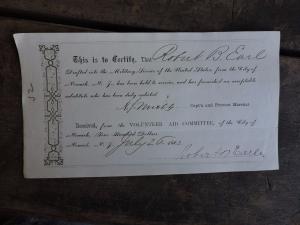 This is to Certify, That Robert B. Earl
Drafted into the Military Service of the United States, from the City of
Newark, N. J., has been held to service, and has furnished an acceptable
substitute who has been duly enlisted
Capt. and Provost Marshal
Received, from the VOLUNTEER AID COMMITTEE, of the City of
Newark, Hundred Dollars
Newark, N. J. July 26
Robert B Earle